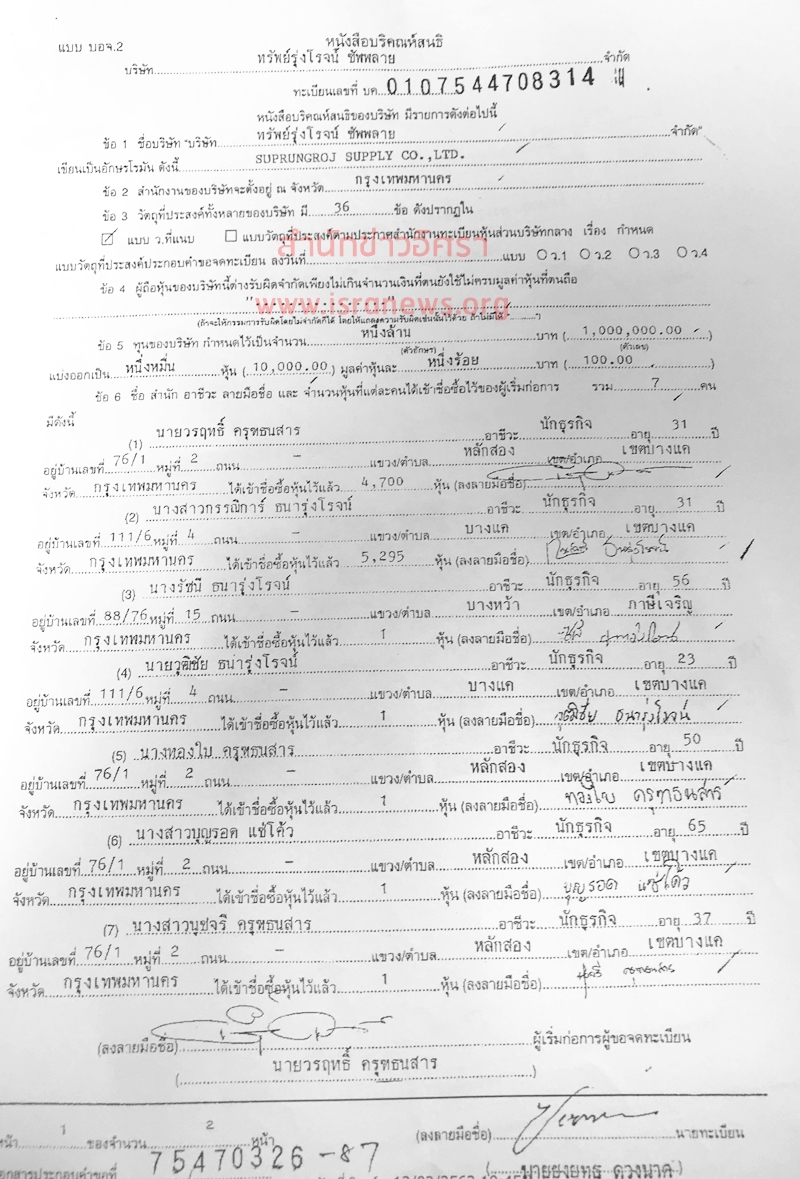 แบบ บอจ.2
หนังสือบริคณห์สนธิ
บริษัท ทรัพย์รุ่งโรจน์ ซัพพลาย จำกัด
ทะเบียนเลขที่ บค. 0107544708314
หนังสือบริคณห์สนธิของบริษัท มีรายการดังต่อไปนี้
ข้อ 1 ชื่อบริษัท "บริษัท ทรัพย์รุ่งโรจน์ ซัพพลาย จำกัด"
เขียนเป็นอักษรโรมัน ดังนี้ SUPRUNGROJ SUPPLY CO.,LTD.
ข้อ 2 สำนักงานของบริษัทจะตั้งอยู่ ณ จังหวัด กรุงเทพมหานคร
ข้อ 3 วัตถุที่ประสงค์ทั้งหลายของบริษัท มี 36 ข้อ ดังปรากฏใน
☑ แบบ ว.ที่แนบ ☐ แบบวัตถุที่ประสงค์ตามประกาศสำนักงานทะเบียนหุ้นส่วนบริษัทกลาง เรื่อง กำหนด
สำนักข่าวอิศรา
แบบวัตถุที่ประสงค์ประกอบคำขอจดทะเบียน ลงวันที่ แบบ ○ ว.1 ○ ว.2 ○ ว.3 ○ ว.4
ข้อ 4 ผู้ถือหุ้นของบริษัทนี้ต่างรับผิดจำกัดเพียงไม่เกินจำนวนเงินที่ตนยังใช้ไม่ครบมูลค่าหุ้นที่ตนถือ
www.isranews.org
(ถ้าจะให้กรรมการรับผิดโดยไม่จำกัดก็ได้ โดยให้แถลงความรับผิดเช่นนั้นไว้ด้วย ถ้าไม่มีใส่ "-")
ข้อ 5 ทุนของบริษัท กำหนดไว้เป็นจำนวน หนึ่งล้าน บาท ( 1,000,000.00 )
(ตัวอักษร) (ตัวเลข)
แบ่งออกเป็น หนึ่งหมื่น หุ้น ( 10,000.00 ) มูลค่าหุ้นละ หนึ่งร้อย บาท ( 100.00 )
ข้อ 6 ชื่อ สำนัก อาชีวะ ลายมือชื่อ และ จำนวนหุ้นที่แต่ละคนได้เข้าชื่อซื้อไว้ของผู้เริ่มก่อการ รวม 7 คน
มีดังนี้
(1) นายวรฤทธิ์ ครุฑธนสาร อาชีวะ นักธุรกิจ อายุ 31 ปี
อยู่บ้านเลขที่ 76/1 หมู่ที่ 2 ถนน - แขวง/ตำบล หลักสอง เขต/อำเภอ เขตบางแค
จังหวัด กรุงเทพมหานคร ได้เข้าชื่อซื้อหุ้นไว้แล้ว 4,700 หุ้น (ลงลายมือชื่อ)
(2) นางสาวกรรณิการ์ ธนารุ่งโรจน์ อาชีวะ นักธุรกิจ อายุ 31 ปี
อยู่บ้านเลขที่ 111/6 หมู่ที่ 4 ถนน - แขวง/ตำบล บางแค เขต/อำเภอ เขตบางแค
จังหวัด กรุงเทพมหานคร ได้เข้าชื่อซื้อหุ้นไว้แล้ว 5,295 หุ้น (ลงลายมือชื่อ)
(3) นางรัชนี ธนารุ่งโรจน์ อาชีวะ นักธุรกิจ อายุ 56 ปี
อยู่บ้านเลขที่ 88/76 หมู่ที่ 15 ถนน - แขวง/ตำบล บางหว้า เขต/อำเภอ ภาษีเจริญ
จังหวัด กรุงเทพมหานคร ได้เข้าชื่อซื้อหุ้นไว้แล้ว 1 หุ้น (ลงลายมือชื่อ)
(4) นายวุฒิชัย ธนารุ่งโรจน์ อาชีวะ นักธุรกิจ อายุ 23 ปี
อยู่บ้านเลขที่ 111/6 หมู่ที่ 4 ถนน - แขวง/ตำบล บางแค เขต/อำเภอ เขตบางแค
จังหวัด กรุงเทพมหานคร ได้เข้าชื่อซื้อหุ้นไว้แล้ว 1 หุ้น (ลงลายมือชื่อ) วุฒิชัย ธนารุ่งโรจน์
(5) นางทองใบ ครุฑธนสาร อาชีวะ นักธุรกิจ อายุ 50 ปี
อยู่บ้านเลขที่ 76/1 หมู่ที่ 2 ถนน - แขวง/ตำบล หลักสอง เขต/อำเภอ เขตบางแค
จังหวัด กรุงเทพมหานคร ได้เข้าชื่อซื้อหุ้นไว้แล้ว 1 หุ้น (ลงลายมือชื่อ) ทองใบ ครุฑธนสาร
(6) นางสาวบุญรอด แซ่โค้ว อาชีวะ นักธุรกิจ อายุ 65 ปี
อยู่บ้านเลขที่ 76/1 หมู่ที่ 2 ถนน - แขวง/ตำบล หลักสอง เขต/อำเภอ เขตบางแค
จังหวัด กรุงเทพมหานคร ได้เข้าชื่อซื้อหุ้นไว้แล้ว 1 หุ้น (ลงลายมือชื่อ) บุญรอด แซ่โค้ว
(7) นางสาวนุชจรี ครุฑธนสาร อาชีวะ นักธุรกิจ อายุ 37 ปี
อยู่บ้านเลขที่ 76/1 หมู่ที่ 2 ถนน - แขวง/ตำบล หลักสอง เขต/อำเภอ เขตบางแค
จังหวัด กรุงเทพมหานคร ได้เข้าชื่อซื้อหุ้นไว้แล้ว 1 หุ้น (ลงลายมือชื่อ)
(ลงลายมือชื่อ) ผู้เริ่มก่อการผู้ขอจดทะเบียน
( นายวรฤทธิ์ ครุฑธนสาร )
หน้า 1 ของจำนวน 2 หน้า (ลงลายมือชื่อ) นายทะเบียน
เอกสารประกอบคำขอที่ 75470326-87 ( นายยงยุทธ ดวงนาค )